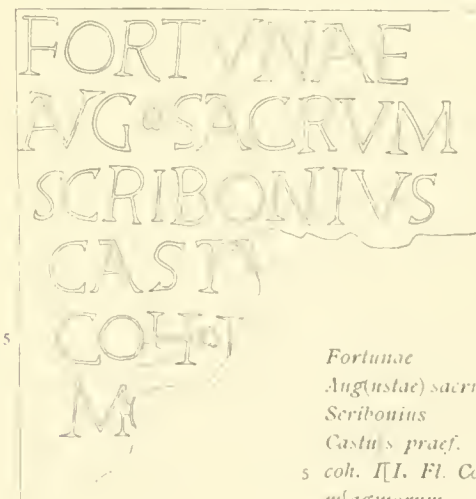 FORTVNAE
AVG SACRVM
SCRIBONIVS
CAST
5 COH I
M
Fortunae
Aug(ustae) sacr
Scribonius
Castu s praef.
5 coh. I[I. Fl. Co